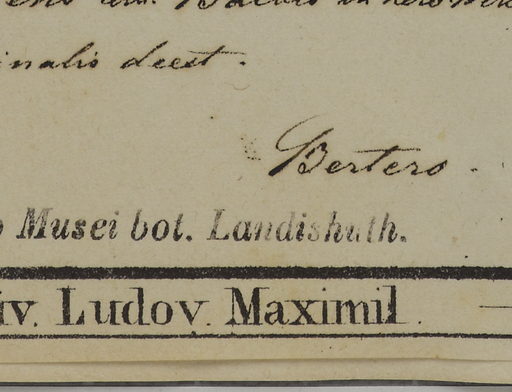 inalis deest.
Bertero.
Musei bot. Landishuth.
iv. Ludov. Maximil.